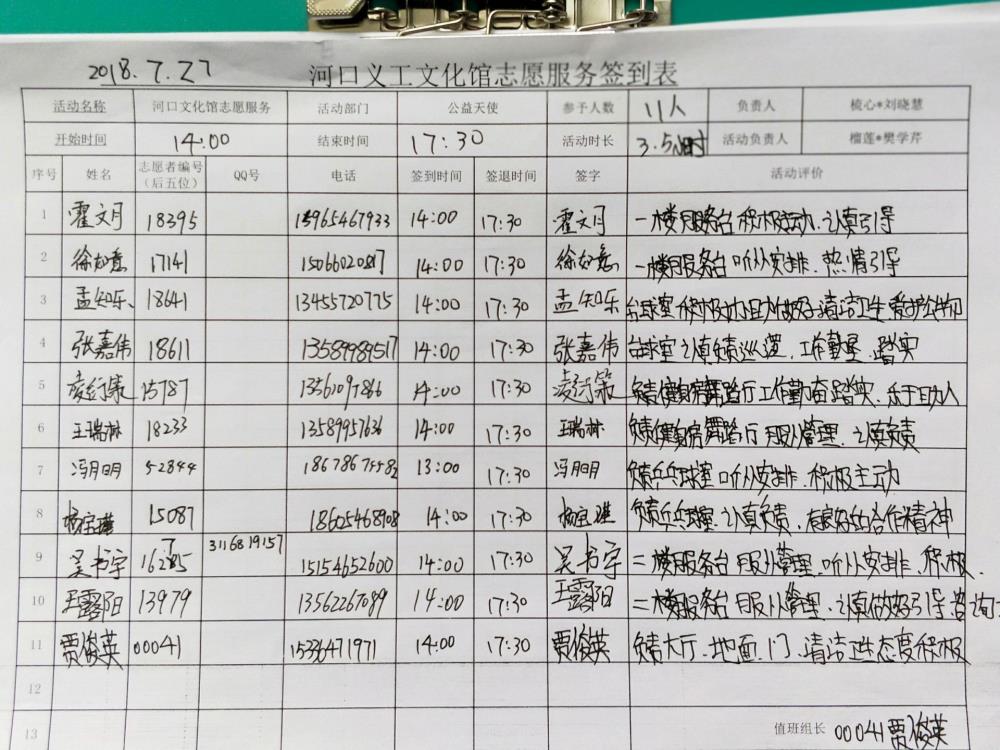 2018.7.27 河口义工文化馆志愿服务签到表
活动名称 河口文化馆志愿服务 活动部门 公益天使 参予人数 11人 负责人 梳心*刘晓慧
开始时间 14:00 结束时间 17:30 活动时长 3.5小时 活动负责人 榴莲*樊学芹
序号 姓名 志愿者编号（后五位） QQ号 电话 签到时间 签退时间 签字 活动评价
1 霍文月 18395 15965467933 14:00 17:30 霍文月 一楼服务台积极主动.认真引导
2 徐如意 17141 15066020817 14:00 17:30 徐如意 一楼服务台听从安排.热情引导
3 孟知乐 18641 13455720775 14:00 17:30 孟知乐 台球室积极协助做好清洁卫生爱护公物
4 张嘉伟 18611 13589989517 14:00 17:30 张嘉伟 台球室认真负责巡逻.工作勤恳.踏实
5 凌行策 15787 14:00 17:30 凌行策 负责健身房舞蹈厅工作勤奋踏实.乐于助人
6 王瑞林 18233 13589957636 14:00 17:30 王瑞林 负责健身房舞蹈厅服从管理.认真负责
7 冯明明 52844 13:00 17:30 冯明明 负责乒乓球室听从安排.积极主动
8 杨宝琪 15087 18605468908 14:00 17:30 杨宝琪 负责乒乓球室.认真负责.有良好的合作精神
9 吴书宇 16285 3116819157 15154652600 14:00 17:30 吴书宇 二楼服务台服从管理.听从安排.积极.
10 王露阳 13979 13562267089 14:00 17:30 王露阳 二楼服务台服从管理.认真做好引导咨询
11 贾俊英 00041 15336471971 14:00 17:30 贾俊英 负责大厅.地面.门.清洁 态度积极
12
13 值班组长 00041贾俊英